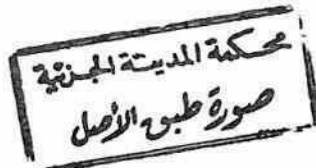 محكمة المدينة الجزئية
صورة طبق الأصل